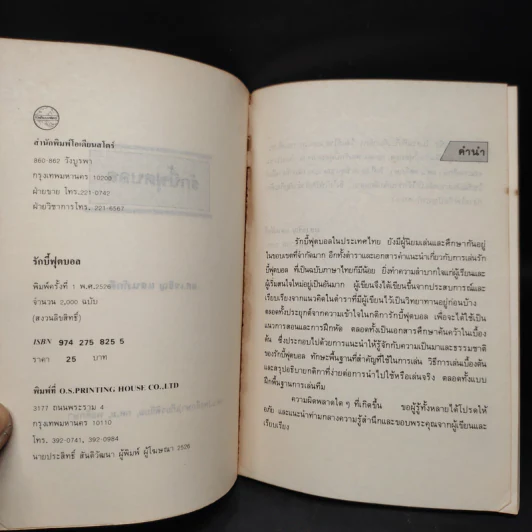 สำนักพิมพ์โอเดียนสโตร์
860-862 วังบูรพา
กรุงเทพมหานคร 10200
ฝ่ายขาย โทร.221-0742
ฝ่ายวิชาการโทร. 221-6567
รักบี้ฟุตบอล
พิมพ์ครั้งที่ 1 พ.ศ.2526
จำนวน 2,000 ฉบับ
(สงวนลิขสิทธิ์)
ISBN 974 275 825 5
ราคา 25 บาท
พิมพ์ที่ O.S.PRINTING HOUSE CO.,LTD
3177 ถนนพระราม 4
กรุงเทพมหานคร 10110
โทร. 392-0741, 392-0984
นายประสิทธิ์ สันติวัฒนา ผู้พิมพ์ ผู้โฆษณา 2526
คำนำ
รักบี้ฟุตบอลในประเทศไทย ยังมีผู้นิยมเล่นและศึกษากันอยู่
ในขอบเขตที่จำกัดมาก อีกทั้งตำราและเอกสารคำแนะนำเกี่ยวกับการเล่นรัก
บี้ฟุตบอล ที่เป็นฉบับภาษาไทยก็มีน้อย ยิ่งทำความลำบากใจแก่ผู้เรียนและ
ผู้เริ่มสนใจใหม่อยู่เป็นอันมาก ผู้เขียนจึงได้เขียนขึ้นจากประสบการณ์และ
เรียบเรียงจากแนวคิดในตำราที่มีผู้เขียนไว้เป็นวิทยาทานอยู่ก่อนบ้าง
ตลอดทั้งประยุกต์จากความเข้าใจในกติการักบี้ฟุตบอล เพื่อจะได้ใช้เป็น
แนวการสอนและการฝึกหัด ตลอดทั้งเป็นเอกสารศึกษาค้นคว้าในเบื้อง
ต้น ซึ่งประกอบไปด้วยการแนะนำให้รู้จักกับความเป็นมาและธรรมชาติ
ของรักบี้ฟุตบอล ทักษะพื้นฐานที่สำคัญที่ใช้ในการเล่น วิธีการเล่นเบื้องต้น
และสรุปอธิบายกติกาที่ง่ายต่อการนำไปใช้หรือเล่นจริง ตลอดทั้งแบบ
ฝึกพื้นฐานการเล่นทีม
ความผิดพลาดใด ๆ ที่เกิดขึ้น ขอผู้รู้ทั้งหลายได้โปรดให้
อภัย และแนะนำท่ามกลางความรู้สำนึกและขอบพระคุณจากผู้เขียนและ
เรียบเรียง